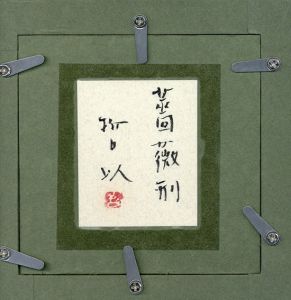 薔薇刑
哲以